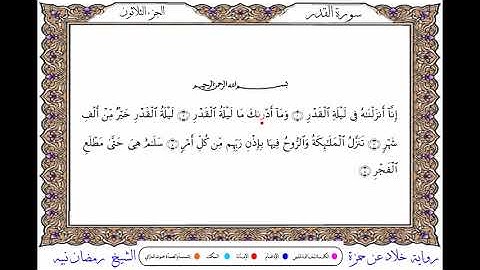 سورة القدر
الجزء الثلاثون
بسم الله الرحمن الرحيم
إِنَّا أَنزَلْنَٰهُ فِى لَيْلَةِ ٱلْقَدْرِ ۝ وَمَا أَدْرَىٰكَ مَا لَيْلَةُ ٱلْقَدْرِ ۝ لَيْلَةُ ٱلْقَدْرِ خَيْرٌ مِّنْ أَلْفِ
شَهْرٍ ۝ تَنَزَّلُ ٱلْمَلَٰٓئِكَةُ وَٱلرُّوحُ فِيهَا بِإِذْنِ رَبِّهِم مِّن كُلِّ أَمْرٍ ۝ سَلَٰمٌ هِىَ حَتَّىٰ مَطْلَعِ
ٱلْفَجْرِ ۝
رواية خلاد عن حمزة
الشيخ رمضان نبيه